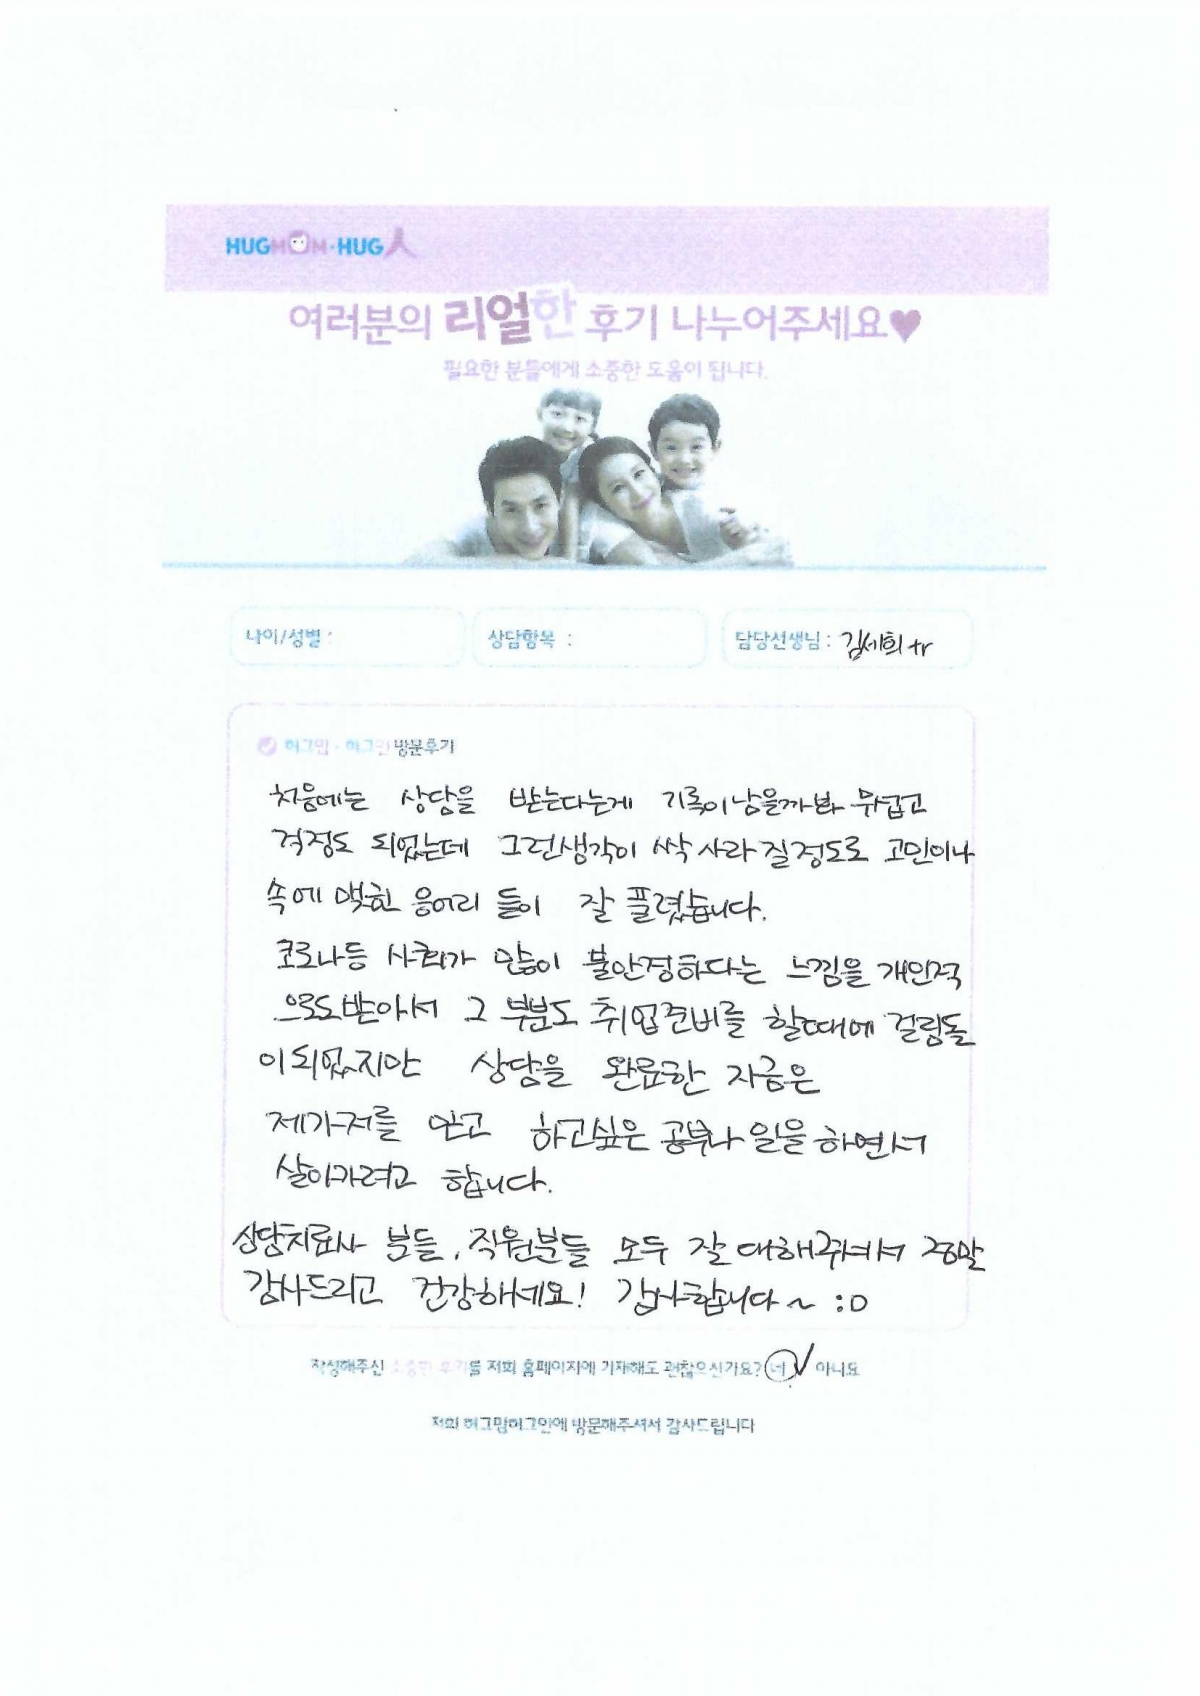 HUGMOM·HUG人
여러분의 리얼한 후기 나누어주세요♥
필요한 분들에게 소중한 도움이 됩니다.
나이/성별 :
상담항목 :
담당선생님 : 김세희 tr
허그맘·허그인 방문후기
처음에는 상담을 받는다는게 기록이남을까봐 무섭고
걱정도 되었는데 그런생각이 싹 사라질정도로 고민이나
속에 맺힌 응어리 들이 잘 풀렸습니다.
코로나등 사회가 많이 불안정하다는 느낌을 개인적
으로도받아서 그 부분도 취업준비를 할때에 걸림돌
이되었지만 상담을 완료한 지금은
제가저를 안고 하고싶은 공부나 일을 하면서
살아가려고 합니다.
상담치료사 분들, 직원분들 모두 잘 대해줘서 정말
감사드리고 건강하세요! 감사합니다~ :D
작성해주신 소중한 후기를 저희 홈페이지에 기재해도 괜찮으신가요? 네 ✓ 아니요
저희 허그맘허그인에 방문해주셔서 감사드립니다